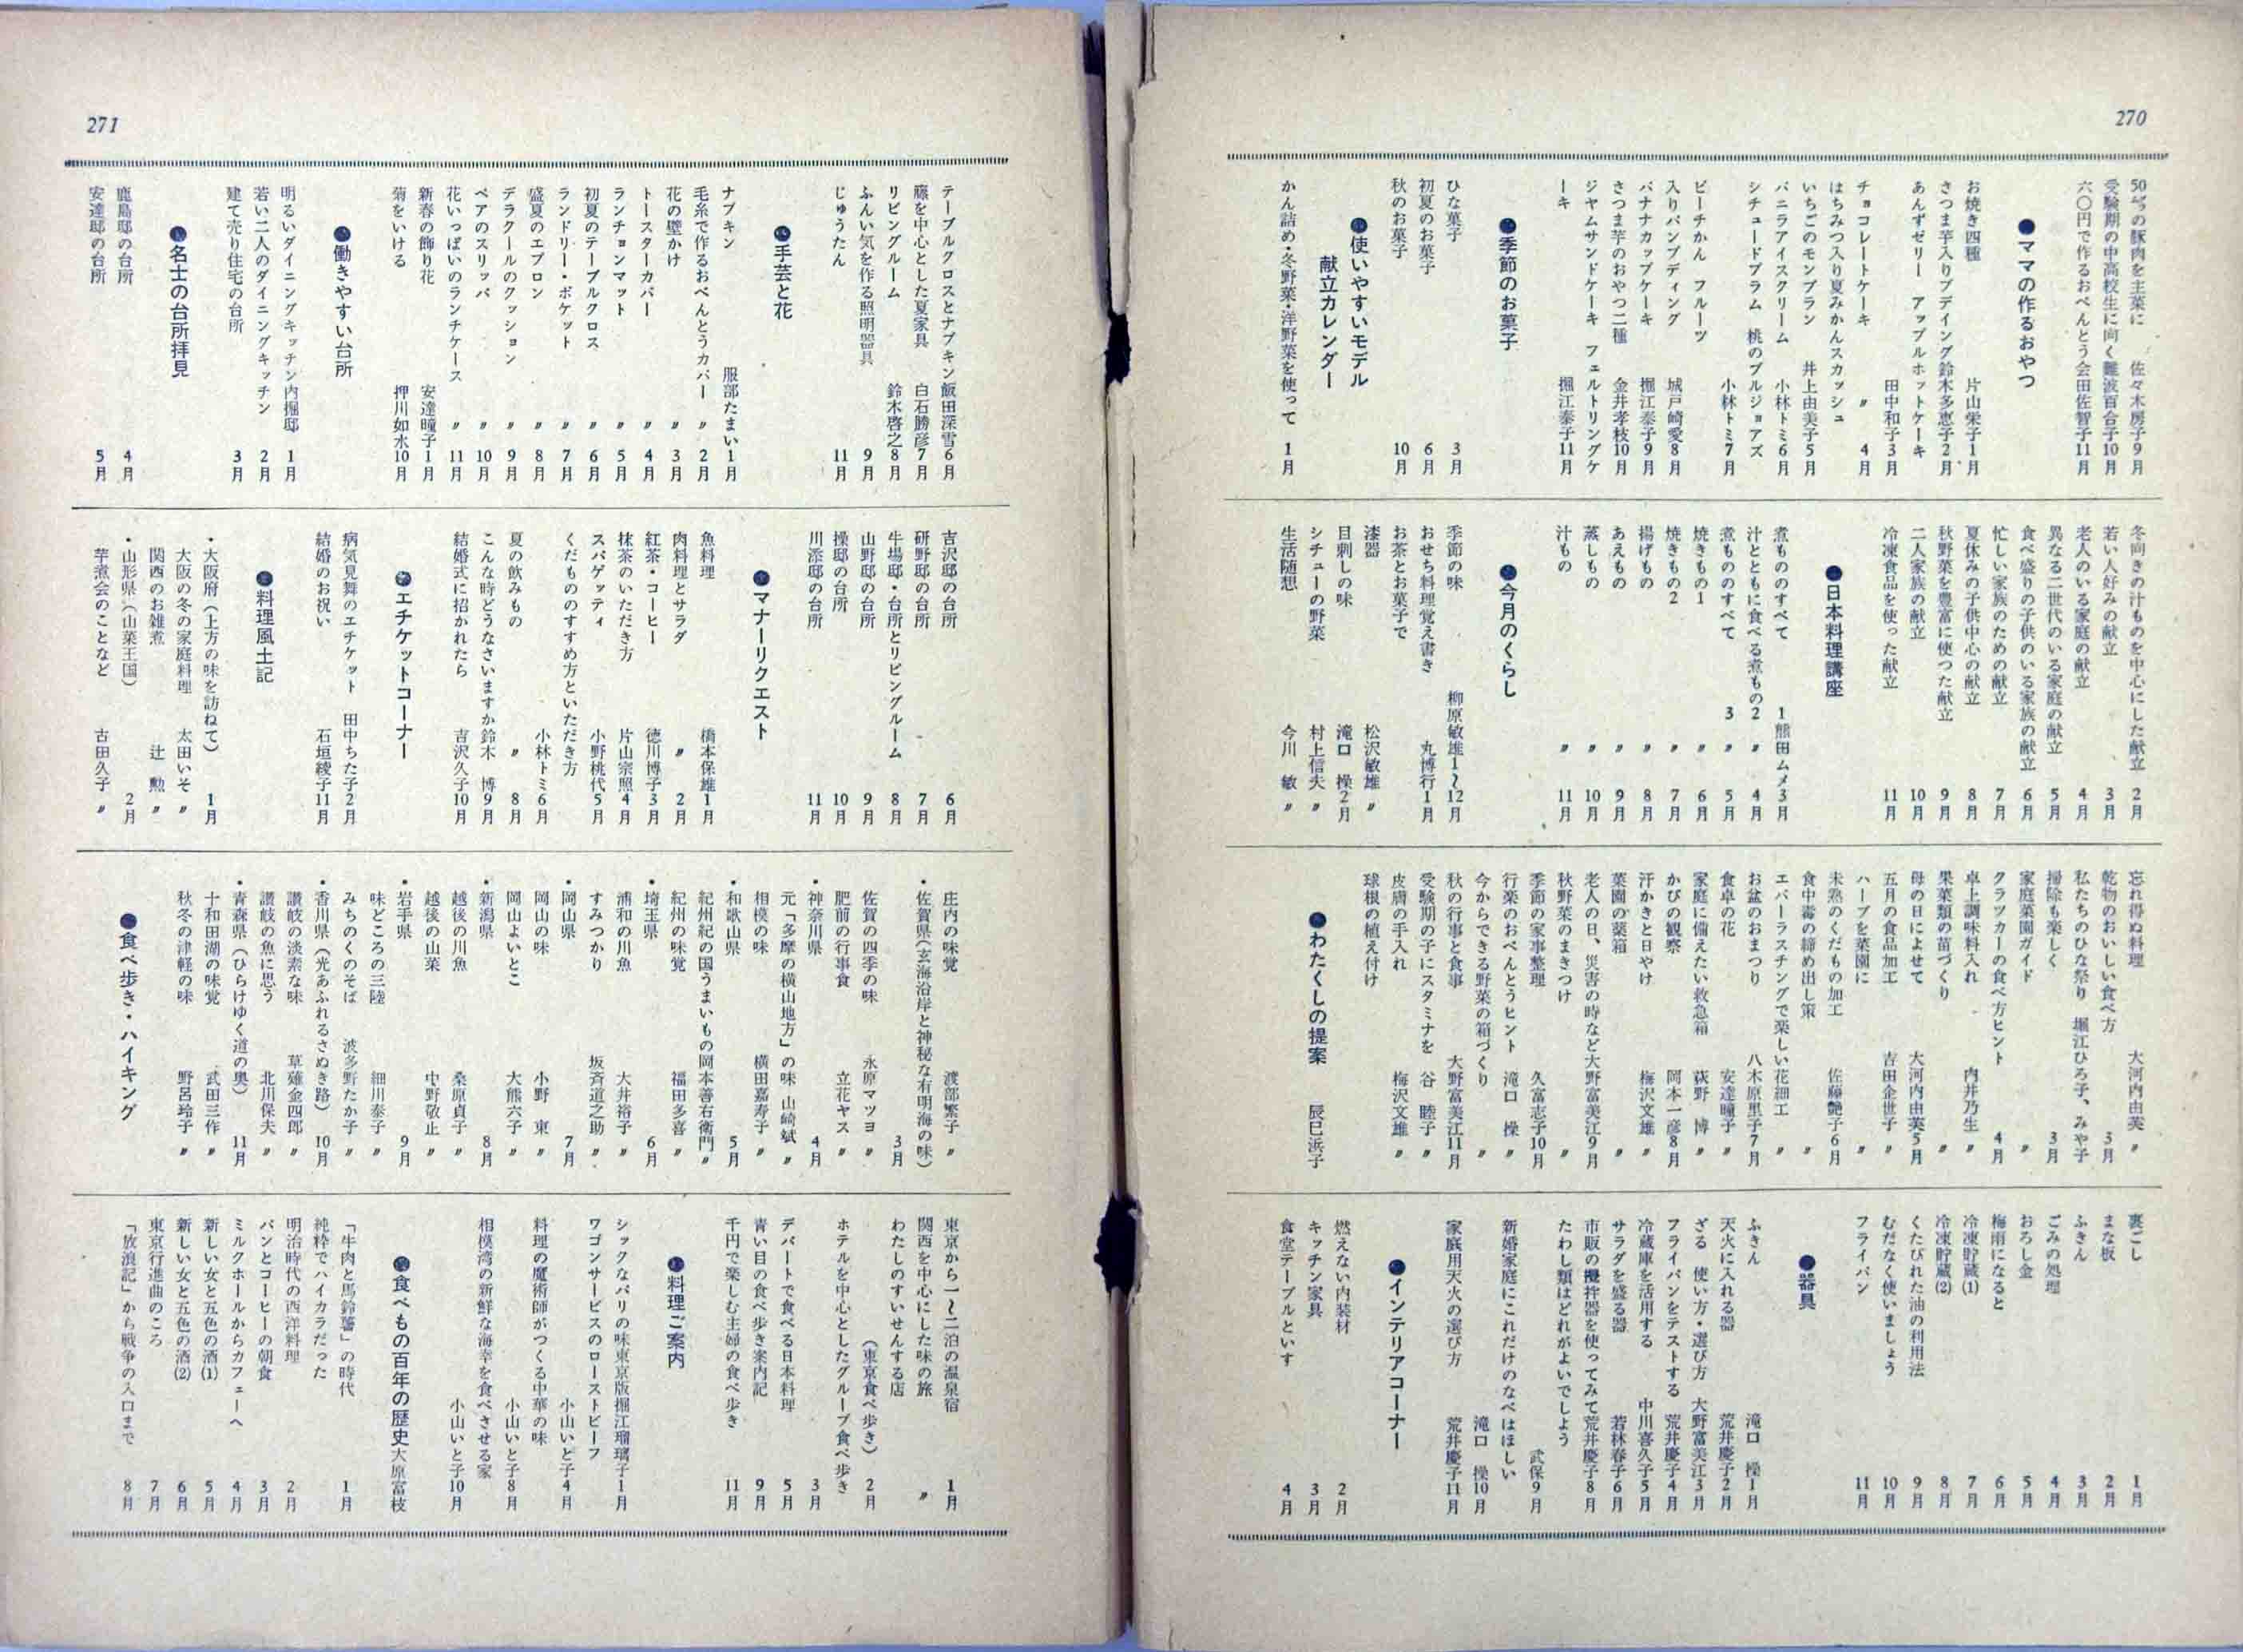 270
50㌘の豚肉を主菜に　佐々木房子　9月
受験期の中高校生に向く　難波百合子　10月
六〇円で作るおべんとう　会田佐智子　11月
●ママの作るおやつ
お焼き四種　片山栄子　1月
さつま芋入りプデイング　鈴木多恵子　2月
あんずゼリー　アップルホットケーキ
田中和子　3月
チョコレートケーキ　〃　4月
はちみつ入り夏みかんスカッシュ
いちごのモンブラン　井上由美子　5月
バニラアイスクリーム　小林トミ　6月
シチュードプラム　桃のブルジョアズ
小林トミ　7月
ピーチかん　フルーツ
入りパンプディング　城戸崎愛　8月
バナナカップケーキ　掘江泰子　9月
さつま芋のおやつ二種　金井孝枝　10月
ジヤムサンドケーキ　フェルトリングケ
ーキ　掘江泰子　11月
●季節のお菓子
ひな菓子　3月
初夏のお菓子　6月
秋のお菓子　10月
●使いやすいモデル
献立カレンダー
かん詰め・冬野菜・洋野菜を使って　1月
冬向きの汁ものを中心にした献立　2月
若い人好みの献立　3月
老人のいる家庭の献立　4月
異なる二世代のいる家庭の献立　5月
食べ盛りの子供のいる家族の献立　6月
忙しい家族のための献立　7月
夏休みの子供中心の献立　8月
秋野菜を豊富に使つた献立　9月
二人家族の献立　10月
冷凍食品を使った献立　11月
●日本料理講座
煮もののすべて　1　熊田ムメ　3月
汁とともに食べる煮もの　2　〃　4月
煮もののすべて　3　〃　5月
焼きもの1　〃　6月
焼きもの2　〃　7月
揚げもの　〃　8月
あえもの　〃　9月
蒸しもの　〃　10月
汁もの　〃　11月
●今月のくらし
季節の味　柳原敏雄　1〜12月
おせち料理覚え書き　丸博行　1月
お茶とお菓子で
漆器　松沢敏雄　〃
目刺しの味　滝口　操　2月
シチューの野菜　村上信夫　〃
生活随想　今川　敏　〃
忘れ得ぬ料理　大河内由美　〃
乾物のおいしい食べ方　3月
私たちのひな祭り　堀江ひろ子、みや子
掃除も楽しく　3月
家庭菜園ガイド　〃
クラツカーの食べ方ヒント　4月
卓上調味料入れ　内井乃生　〃
果菜類の苗づくり　〃
母の日によせて　大河内由美　5月
五月の食品加工　吉田企世子　〃
ハーブを菜園に　〃
未熟のくだもの加工　佐藤艶子　6月
食中毒の締め出し策　〃
エバーラスチングで楽しい花細工　〃
お盆のおまつり　八木原里子　7月
食卓の花　安達瞳子　〃
家庭に備えたい救急箱　荻野　博　〃
かびの観察　岡本一彦　8月
汗かきと日やけ　梅沢文雄　〃
菜園の薬箱　〃
老人の日、災害の時など　大野富美江　9月
秋野菜のまきつけ　〃
季節の家事整理　久富志子　10月
行楽のおべんとうヒント　滝口　操　〃
今からできる野菜の箱づくり　〃
秋の行事と食事　大野富美江　11月
受験期の子にスタミナを　谷　睦子　〃
皮膚の手入れ　梅沢文雄　〃
球根の植え付け
●わたくしの提案　辰巳浜子
裏ごし　1月
まな板　2月
ふきん　3月
ごみの処理　4月
おろし金　5月
梅雨になると　6月
冷凍貯蔵(1)　7月
冷凍貯蔵(2)　8月
くたびれた油の利用法　9月
むだなく使いましょう　10月
フライパン　11月
●器具
ふきん　滝口　操　1月
天火に入れる器　荒井慶子　2月
ざる　使い方・選び方　大野富美江　3月
フライパンをテストする　荒井慶子　4月
冷蔵庫を活用する　中川喜久子　5月
サラダを盛る器　若林春子　6月
市販の攪拌器を使ってみて　荒井慶子　8月
たわし類はどれがよいでしよう
武保　9月
新婚家庭にこれだけのなべはほしい
滝口　操　10月
家庭用天火の選び方　荒井慶子　11月
●インテリアコーナー
燃えない内装材　2月
キッチン家具　3月
食堂テーブルといす　4月
271
テーブルクロスとナプキン　飯田深雪　6月
籐を中心とした夏家具　白石勝彦　7月
リビングルーム　鈴木啓之　8月
ふんい気を作る照明器具　9月
じゅうたん　11月
●手芸と花
ナプキン　服部たまい　1月
毛糸で作るおべんとうカバー　〃　2月
花の壁かけ　〃　3月
トースターカバー　〃　4月
ランチョンマット　〃　5月
初夏のテーブルクロス　〃　6月
ランドリー・ポケット　〃　7月
盛夏のエプロン　〃　8月
デラクールのクッション　〃　9月
ペアのスリッパ　〃　10月
花いっぱいのランチケース　〃　11月
新春の飾り花　安達瞳子　1月
菊をいける　押川如水　10月
●働きやすい台所
明るいダイニングキッチン　内掘邸　1月
若い二人のダイニングキッチン　2月
建て売り住宅の台所　3月
●名士の台所拝見
鹿島邸の台所　4月
安達邸の台所　5月
吉沢邸の台所　6月
研野邸の台所　7月
牛場邸・台所とリビングルーム　8月
山野邸の台所　9月
操邸の台所　10月
川添邸の台所　11月
●マナーリクエスト
魚料理　橋本保雄　1月
肉料理とサラダ　〃　2月
紅茶・コーヒー　徳川博子　3月
抹茶のいただき方　片山宗照　4月
スパゲッティ　小野桃代　5月
くだもののすすめ方といただき方
小林トミ　6月
夏の飲みもの　〃　8月
こんな時どうなさいますか　鈴木　博　9月
結婚式に招かれたら　吉沢久子　10月
●エチケットコーナー
病気見舞のエチケット　田中ちた子　2月
結婚のお祝い　石垣綾子　11月
●料理風土記
・大阪府（上方の味を訪ねて）　1月
大阪の冬の家庭料理　太田いそ　〃
関西のお雑煮　辻　勲　〃
・山形県（山菜王国）　2月
芋煮会のことなど　古田久子　〃
庄内の味覚　渡部繁子　〃
・佐賀県（玄海沿岸と神秘な有明海の味）
3月
佐賀の四季の味　永原マツヨ　〃
肥前の行事食　立花ヤス　〃
・神奈川県　4月
元「多摩の横山地方」の味　山崎斌　〃
相模の味　横田嘉寿子　〃
・和歌山県　5月
紀州紀の国うまいもの　岡本善右衛門　〃
紀州の味覚　福田多喜　〃
・埼玉県　6月
浦和の川魚　大井裕子　〃
すみつかり　坂斉道之助　〃
・岡山県　7月
岡山の味　小野　東　〃
岡山よいとこ　大熊六子　〃
・新潟県　8月
越後の川魚　桑原貞子　〃
越後の山菜　中野敬止　〃
・岩手県　9月
味どころの三陸　細川泰子　〃
みちのくのそば　波多野たか子　〃
・香川県（光あふれるさぬき路）　10月
讃岐の淡素な味　草薙金四郎　〃
讃岐の魚に思う　北川保夫　〃
・青森県（ひらけゆく道の奥）　11月
十和田湖の味覚　武田三作　〃
秋冬の津軽の味　野呂玲子　〃
●食べ歩き・ハイキング
東京から一〜二泊の温泉宿　1月
関西を中心にした味の旅　〃
わたしのすいせんする店
（東京食べ歩き）　2月
ホテルを中心としたグループ食べ歩き
3月
デパートで食べる日本料理　5月
青い目の食べ歩き案内記　9月
千円で楽しむ主婦の食べ歩き　11月
●料理ご案内
シックなパリの味東京版　掘江瑠璃子　1月
ワゴンサービスのローストビーフ
小山いと子　4月
料理の魔術師がつくる中華の味
小山いと子　8月
相模湾の新鮮な海幸を食べさせる家
小山いと子　10月
●食べもの百年の歴史　大原富枝
「牛肉と馬鈴薯」の時代　1月
純粋でハイカラだった
明治時代の西洋料理　2月
パンとコーヒーの朝食　3月
ミルクホールからカフェーへ　4月
新しい女と五色の酒(1)　5月
新しい女と五色の酒(2)　6月
東京行進曲のころ　7月
「放浪記」から戦争の入口まで　8月